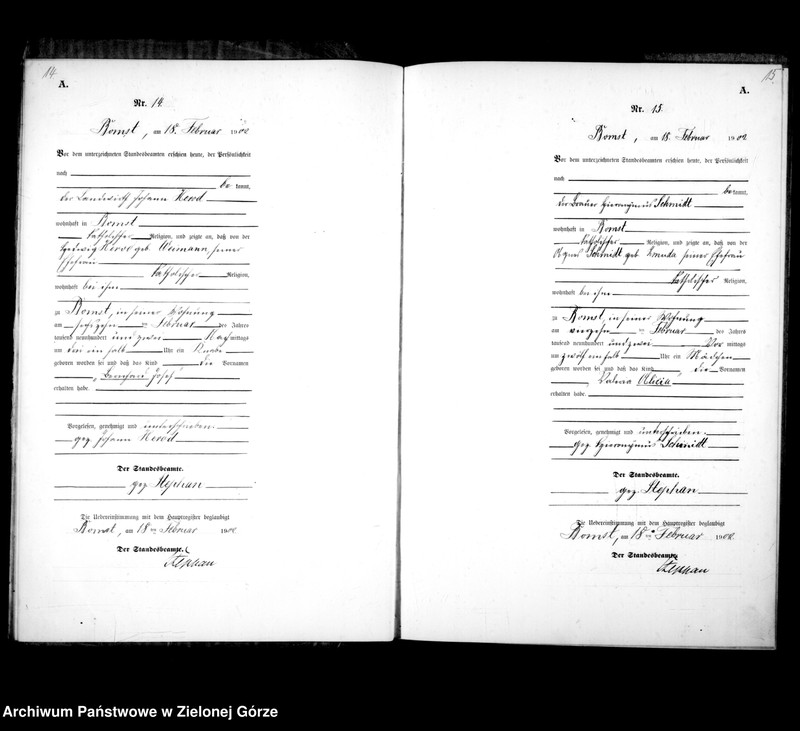 14
A.
Nr. 14
Bomst, am 18. Februar 1902
Vor dem unterzeichneten Standesbeamten erschien heute, der Persönlichkeit
nach
be kannt,
der Landwirth Johann Herod
wohnhaft in Bomst
katholischer Religion, und zeigte an, daß von der
Hedwig Herod geb. Weimann seiner
Ehefrau
katholischer Religion,
wohnhaft bei ihm
zu Bomst, in seiner Wohnung
am sechszehnten Februar des Jahres
tausend neunhundert und zwei Nachmittags
um ein halb Uhr ein Knabe
geboren worden sei und daß das Kind die Vornamen
Josef
erhalten habe.
Vorgelesen, genehmigt und unterschrieben.
gez. Johann Herod
Der Standesbeamte.
gez. Stephan
Die Uebereinstimmung mit dem Hauptregister beglaubigt
Bomst, am 18ten Februar 1902
Der Standesbeamte.
Stephan
15
A.
Nr. 15
Bomst, am 18. Februar 1902
Vor dem unterzeichneten Standesbeamten erschien heute, der Persönlichkeit
nach
be kannt,
der Hieronymus Schmidt
wohnhaft in Bomst
katholischer Religion, und zeigte an, daß von der
Agnes Schmidt geb. seiner Ehefrau
katholischer Religion,
wohnhaft bei ihm
zu Bomst, in seiner Wohnung
am Februar des Jahres
tausend neunhundert und zwei Vor mittags
um zwölf einhalb Uhr ein Mädchen
geboren worden sei und daß das Kind die Vornamen
erhalten habe.
Vorgelesen, genehmigt und unterschrieben.
gez. Hieronymus Schmidt
Der Standesbeamte.
gez. Stephan
Die Uebereinstimmung mit dem Hauptregister beglaubigt
Bomst, am 18ten Februar 1902
Der Standesbeamte
Stephan
Archiwum Państwowe w Zielonej Górze